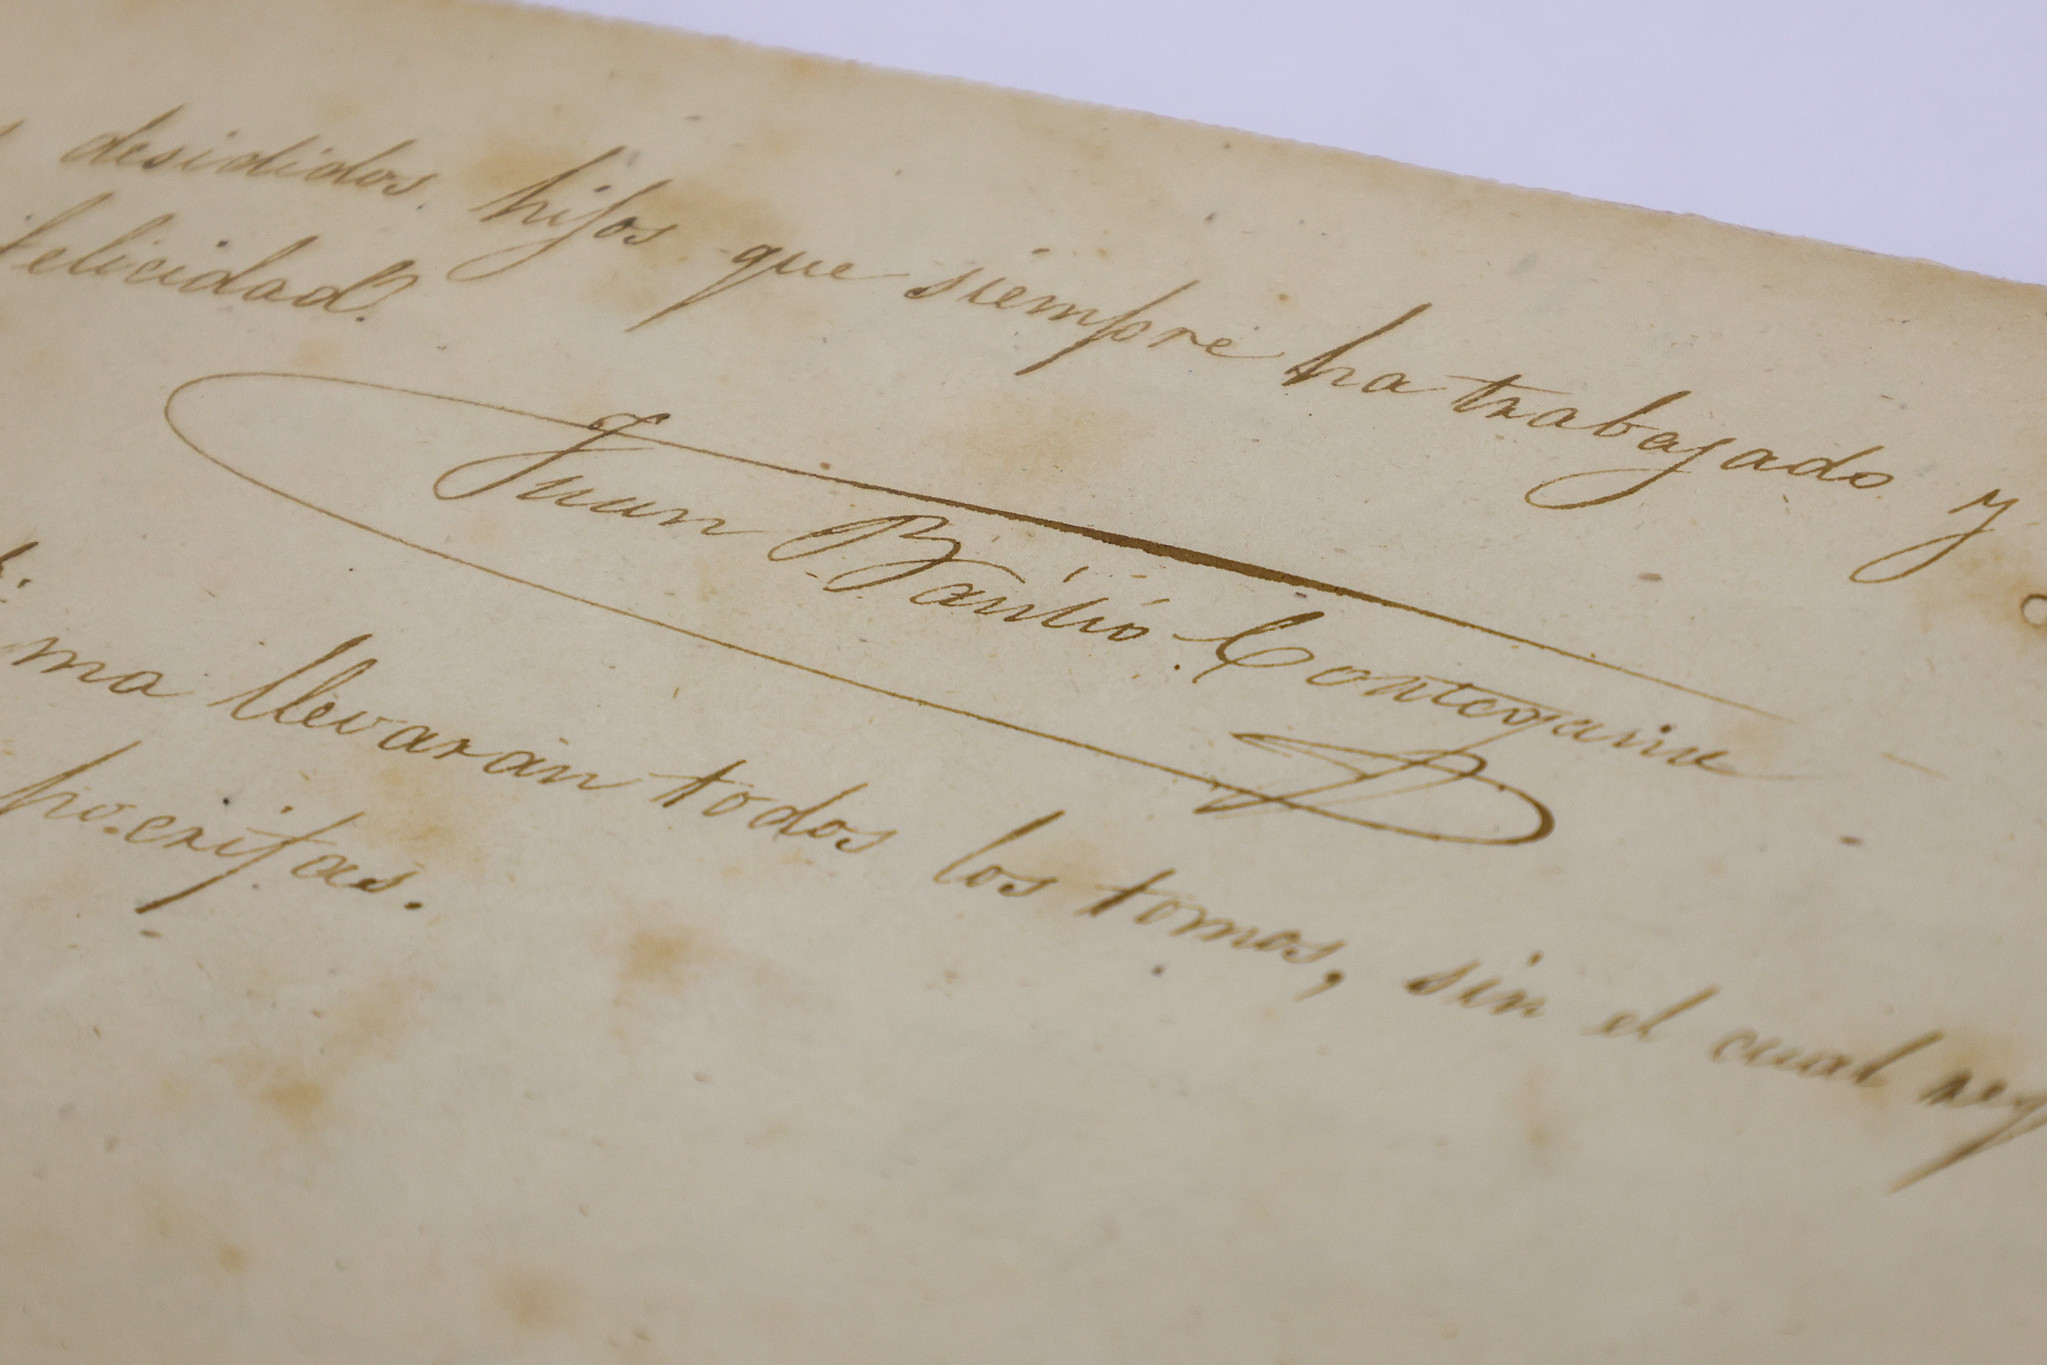 desididos hijos que siempre ha trabajado y
felicidad.
Juan Basilio Cortegana
ma llevarán todos los tomos, sin el cual
pocrifas.